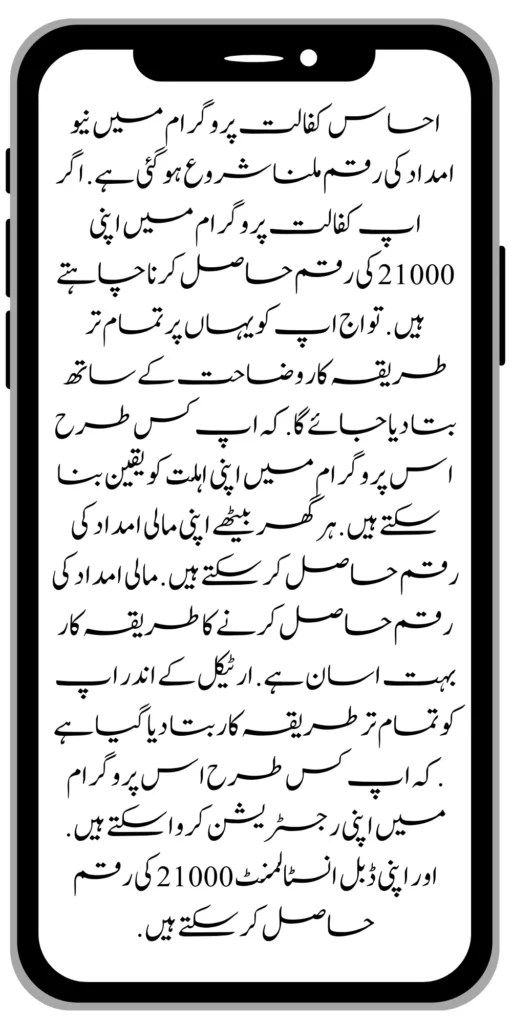 احساس کفالت پروگرام میں نیو
امداد کی رقم ملنا شروع ہو گئی ہے. اگر
اپ کفالت پروگرام میں اپنی
21000 کی رقم حاصل کرنا چاہتے
ہیں. تو اج اپ کو یہاں پر تمام تر
طریقہ کار وضاحت کے ساتھ
بتا دیا جائے گا. کہ اپ کس طرح
اس پروگرام میں اپنی اہلت کو یقین بنا
سکتے ہیں. ہر گھر بیٹھے اپنی مالی امداد کی
رقم حاصل کر سکتے ہیں. مالی امداد کی
رقم حاصل کرنے کا طریقہ کار
بہت اسان ہے. ارٹیکل کے اندر اپ
کو تمام تر طریقہ کار بتا دیا گیا ہے
. کہ اپ کس طرح اس پروگرام
میں اپنی رجسٹریشن کروا سکتے ہیں.
اور اپنی ڈبل انسٹالمنٹ 21000 کی رقم
حاصل کر سکتے ہیں.